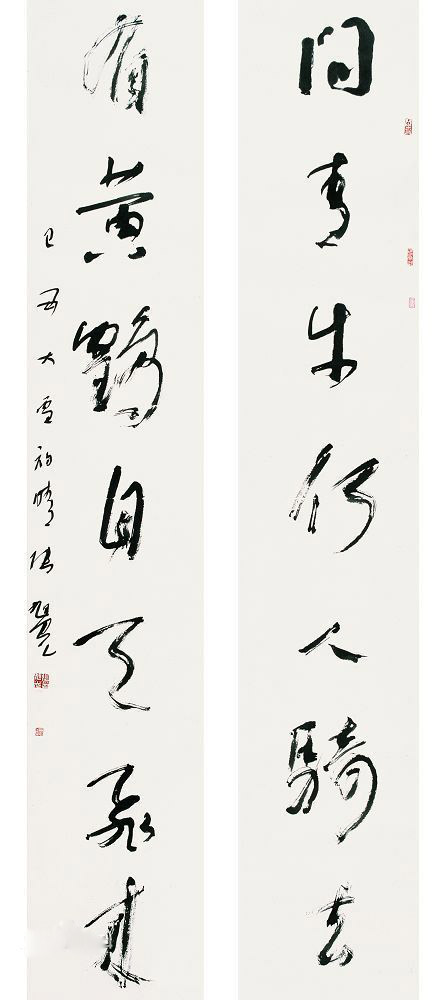 問青牛何人騎去
有黄鶴自天飛來
己丑大雪初晴張旭光